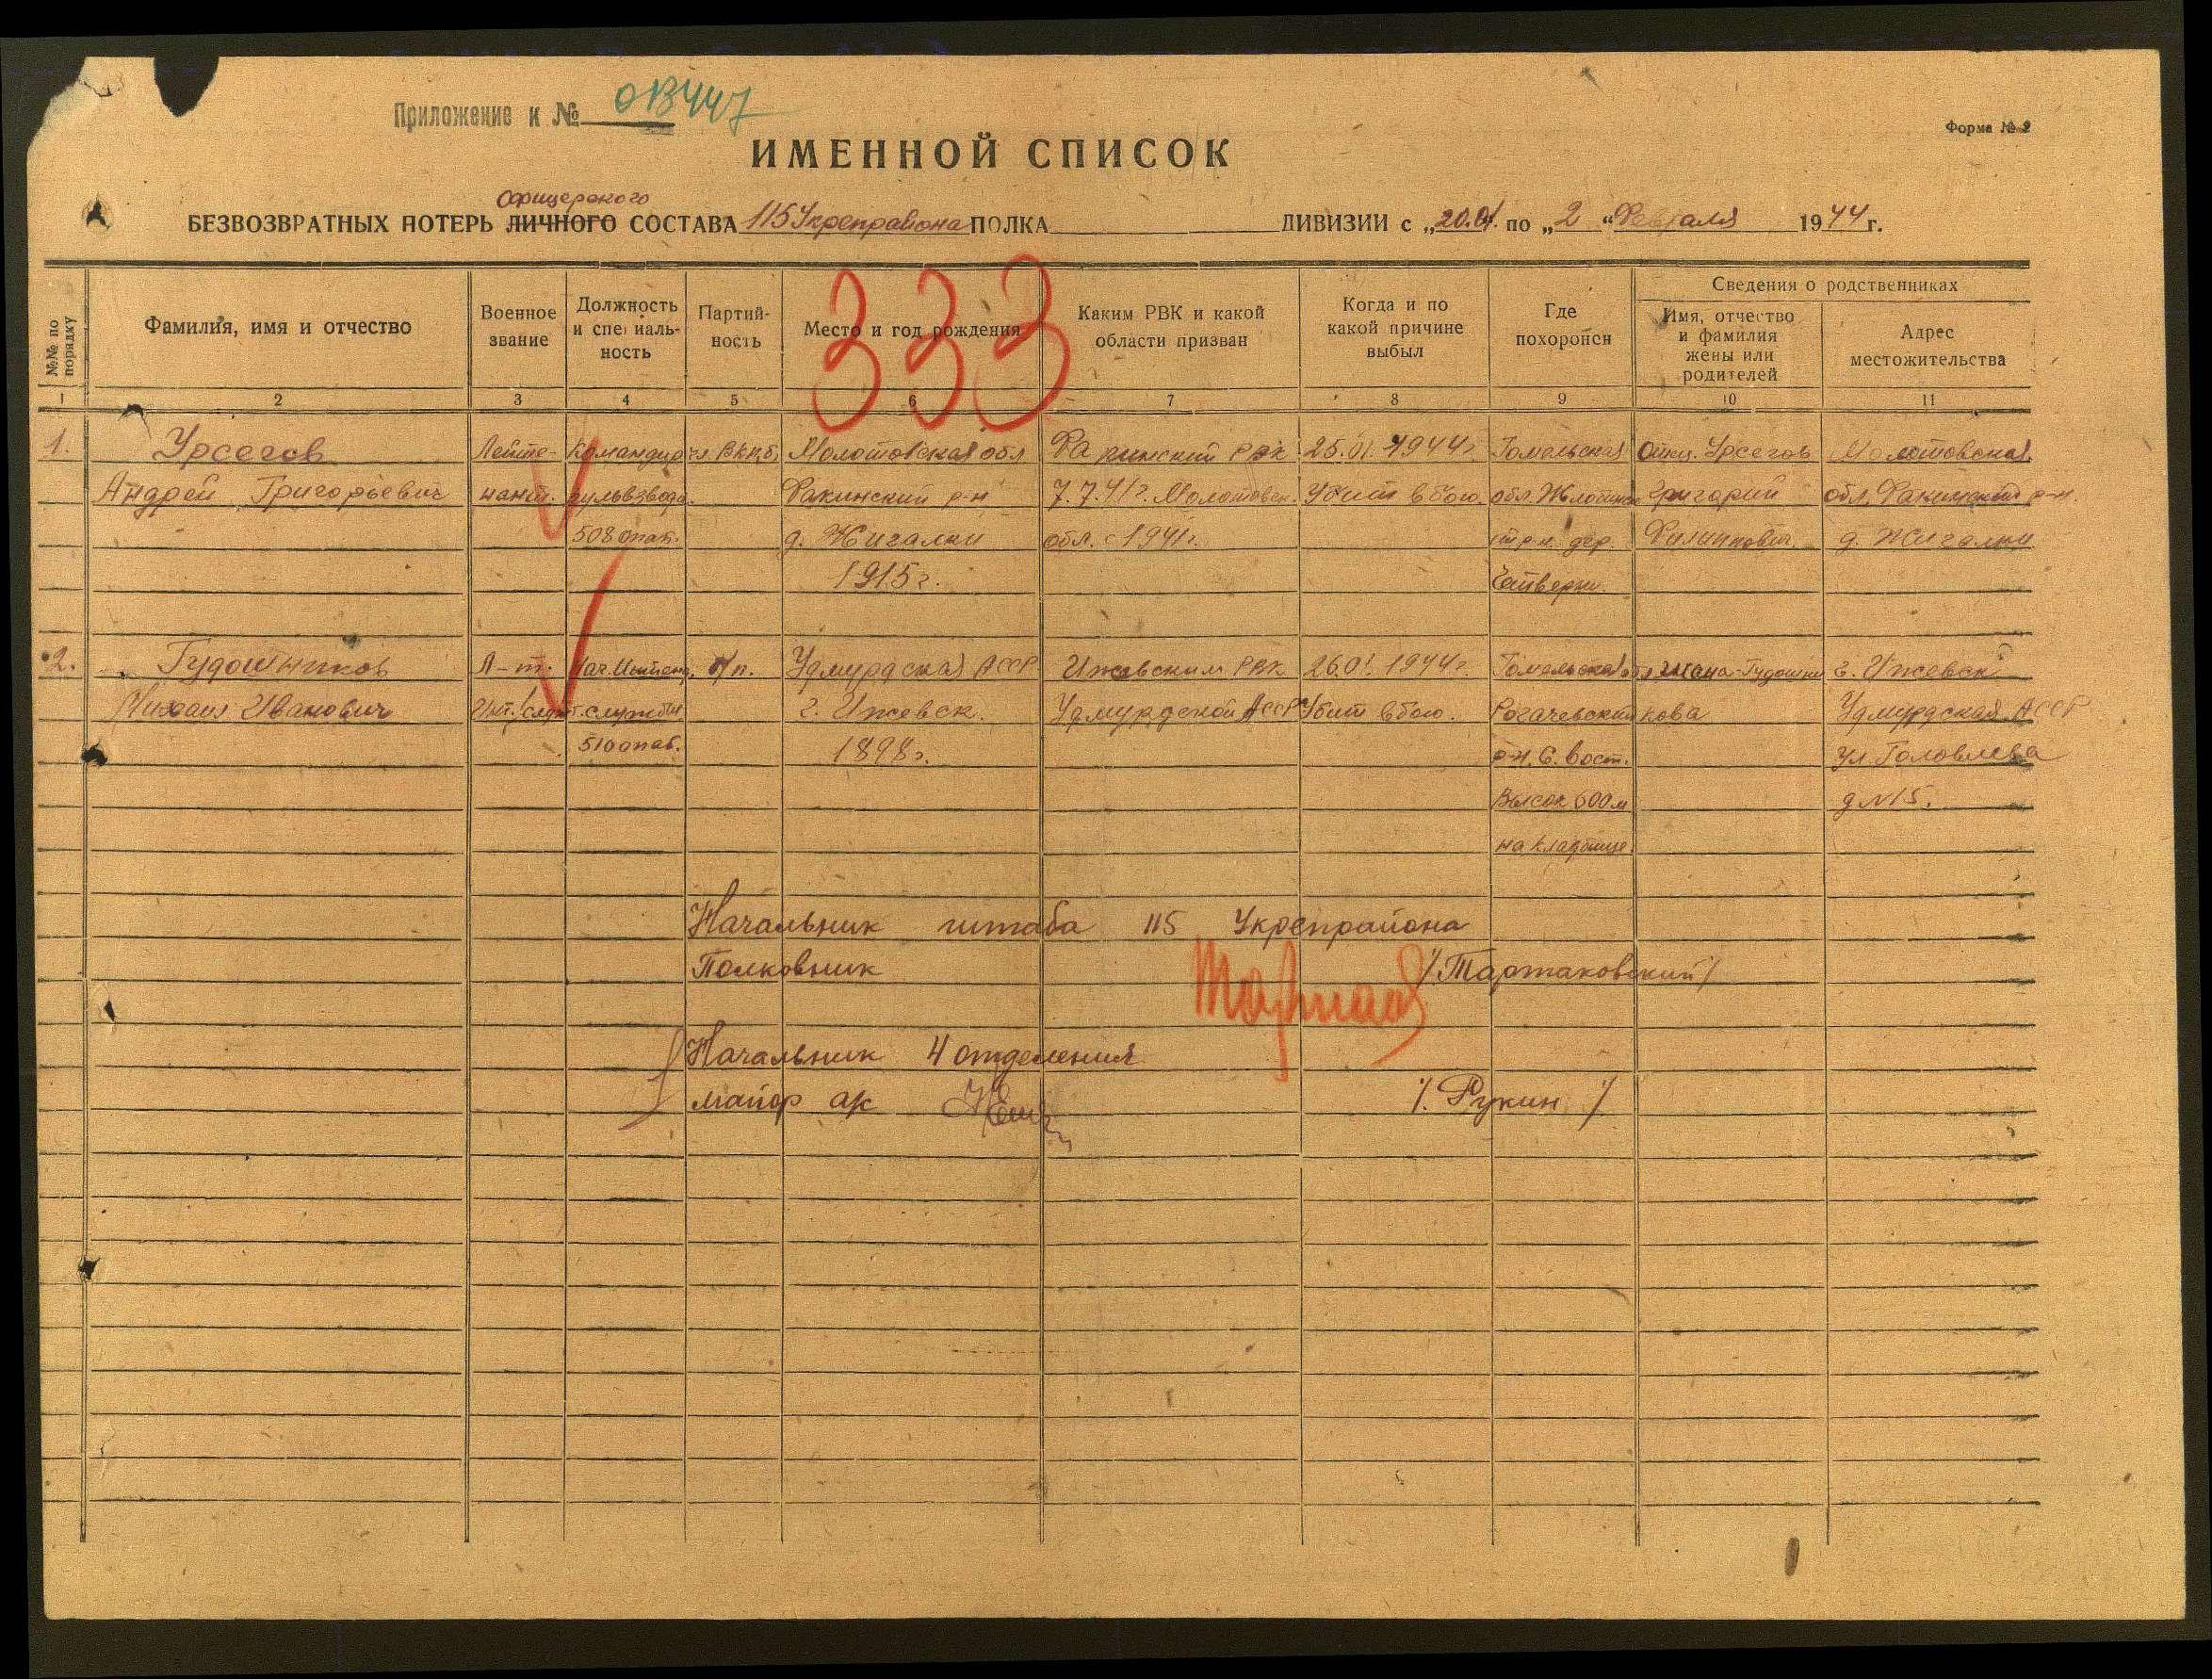 Приложение к № 013447
Форма № 2
ИМЕННОЙ СПИСОК
офицерского
БЕЗВОЗВРАТНЫХ ПОТЕРЬ ЛИЧНОГО СОСТАВА 115 Укрепрайона ПОЛКА ДИВИЗИИ с „20.01. по „2 “ Февраля 1944 г.
333
№№ по порядку
Фамилия, имя и отчество
Военное звание
Должность и специальность
Партийность
Место и год рождения
Каким РВК и какой области призван
Когда и по какой причине выбыл
Где похоронен
Сведения о родственниках
Имя, отчество и фамилия жены или родителей
Адрес местожительства
1 2 3 4 5 6 7 8 9 10 11
1. Урсегов Лейте- Командир чл. ВКПб, Молотовская обл РВК 25.01.1944г. Гомельская отец. Урсегов Молотовская
Андрей Григорьевич нант. пульвзвода Факинский р-н 7.7.41г. Молотовск. Убит в бою. обл. Григорий обл. Факинский р-н.
508 опаб. д. Жигалки обл. с 1941г. дер. Филиппович. д. Жигалки
1915г. Четверни
2. Гудошников Л-т. Нач. Интенд. б/п. Удмурдская АССР Ижевским РВК 26.01.1944г. Гомельская обл жена-Гудошни г. Ижевск
Михаил Иванович Инт. служ службы г. Ижевск. Удмурдской АССР Убит в бою. Рогачевский кова Удмурдская АССР
510 опаб. 1898г. р-н. С. Вост. ул. Головлева
Высок 600 м д №15.
на кладбище
Начальник штаба 115 Укрепрайона
Полковник /Тартаковский/
Начальник 4 отделения
майор а/с /. Рукин /